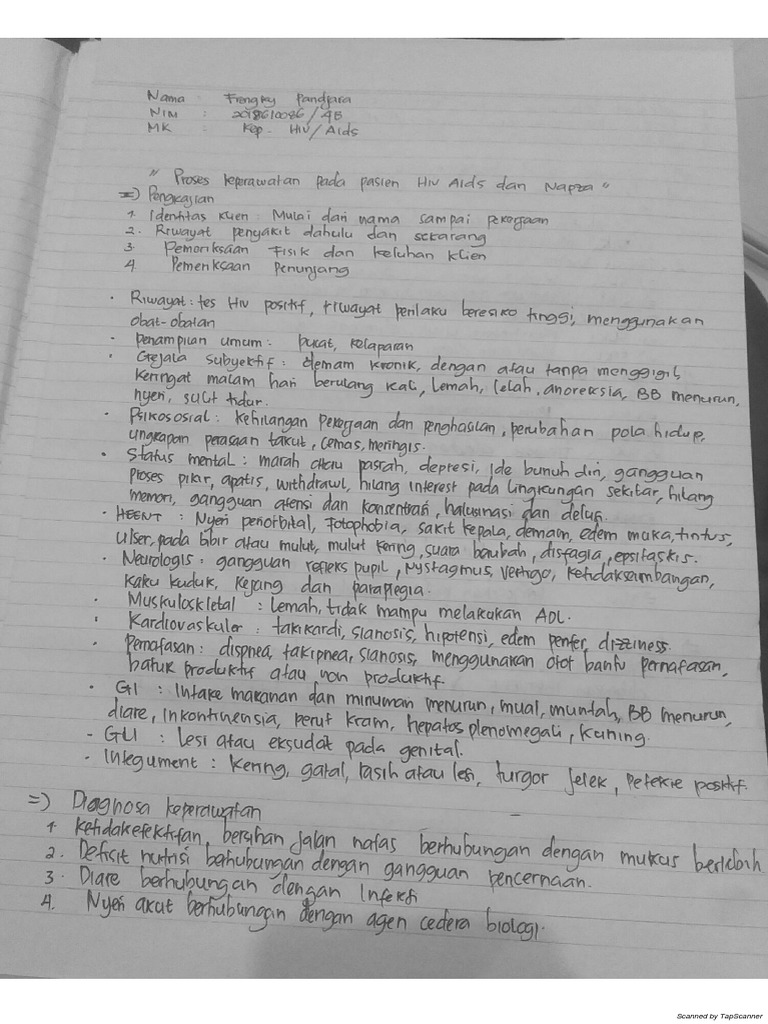 Nama : Frengky Pandjara
NIM : 2018610086/4B
MK : Kep. HIV/Aids
" Proses keperawatan pada pasien HIV Aids dan Napza "
=) Pengkajian
1. Identitas klien : Mulai dari nama sampai pekerjaan
2. Riwayat penyakit dahulu dan sekarang
3. Pemeriksaan Fisik dan keluhan klien
4. Pemeriksaan penunjang
· Riwayat : tes HIV positif, riwayat perilaku beresiko tinggi, menggunakan
obat-obatan
· Penampilan umum : pucat, kelaparan
· Gejala subyektif : demam kronik, dengan atau tanpa menggigil,
keringat malam hari berulang kali, lemah, lelah, anoreksia, BB menurun,
nyeri, sulit tidur.
· Psikososial : kehilangan pekerjaan dan penghasilan, perubahan pola hidup,
ungkapan perasaan takut, cemas, meringis.
· Status mental : marah atau pasrah, depresi, ide bunuh diri, gangguan
proses pikir, apatis, withdrawl, hilang interest pada lingkungan sekitar, hilang
memori, gangguan atensi dan konsentrasi, halusinasi dan delusi.
· HEENT : Nyeri periorbital, Fotophobia, sakit kepala, demam, edem muka, tintus,
ulser, pada bibir atau mulut, mulut kering, suara berubah, disfagia, epsitaksis.
· Neurologis : gangguan refleks pupil, nystagmus, vertigo, ketidakseimbangan,
kaku kuduk, kejang dan paraplegia.
· Muskuloskletal : Lemah, tidak mampu melakukan ADL.
· Kardiovaskuler : takikardi, sianosis, hipotensi, edem perifer, dizziness.
· Pernafasan : dispnea, takipnea, sianosis, menggunakan otot bantu pernafasan,
batuk produktif atau non produktif.
· GI : Intake makanan dan minuman menurun, mual, muntah, BB menurun,
diare, inkontinensia, perut kram, hepatosplenomegali, kuning.
- GU : Lesi atau eksudat pada genital.
· Integument : kering, gatal, rash atau lesi, turgor jelek, petekie positif.
=) Diagnosa keperawatan
1. ketidakefektifan, bersihan jalan nafas berhubungan dengan mukus berlebih
2. Deficit nutrisi berhubungan dengan gangguan pencernaan.
3. Diare berhubungan dengan Infeksi
4. Nyeri akut berhubungan dengan agen cedera biologi.
Scanned by TapScanner